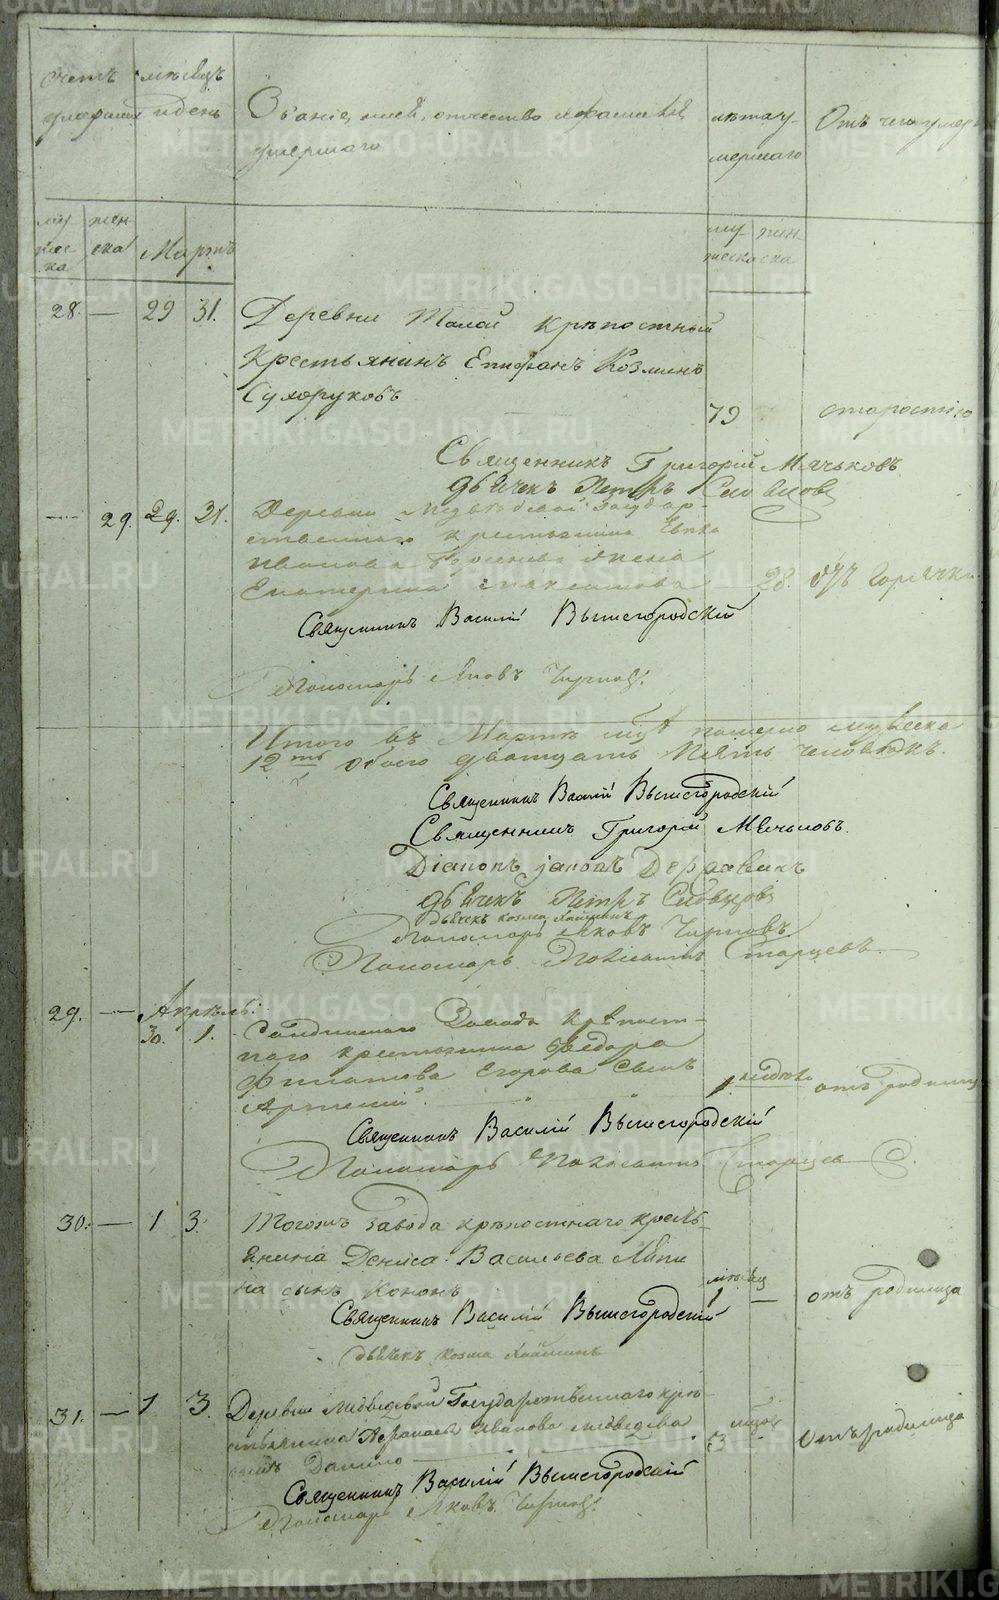 Счетъ
умершихъ
мѣсяцъ
и день
Званіе, имя, отчество и фамилія
умершаго
лѣта у-
мершаго
Отъ чего умеръ
му-
жес-
ка
жен-
ска
Мартъ
му-
жеска
жен-
ска
28. — 29 31. Деревни Талой крѣпостный
крестьянинъ Епифанъ Козминъ
Сухоруковъ
79 старостію
Священникъ Григорій Мячьковъ
дьячекъ Петръ
— 29. 29. 31. Деревни Медвѣдевой Государ-
ственнаго крестьянина
Иванова жена
Екатерина Максимова 28. отъ Горячки
Священникъ Василій Вышегородскій
Пономарь Яковъ Чирковъ.
Итого въ Мартѣ помено мужеска
12ть обоего двадцать пять человѣкъ.
Священникъ Василій Вышегородскій
Священникъ Григорій Мячьковъ.
Діаконъ Державинъ
дьячекъ Петръ
дьячекъ козма
Пономарь Яковъ Чирковъ
Пономарь Старцевъ
29. — Апрѣль.
30. 1. Салдинскаго Завода крѣпост-
наго крестьянина Ѳедора
Филатова Егорова сынъ
Артемій. 1 недѣль отъ родимца
Священникъ Василій Вышегородскій
Пономарь Старцевъ
30. — 1 3. Тогожъ завода крѣпостнаго кресть-
янина Дениса Васильева Липи
на сынъ Кононъ
мѣсяц
1 — отъ родимца
Священникъ Василій Вышегородскій
дьячекъ козма
31. — 1 3. Деревни Медвѣдевой Государственнаго кре
стьянина Иванова Медведева
сынъ Данило 3 отъ родимца
Священникъ Василій Вышегородскій
Пономарь Яковъ Чирковъ.
METRIKI.GASO-URAL.RU